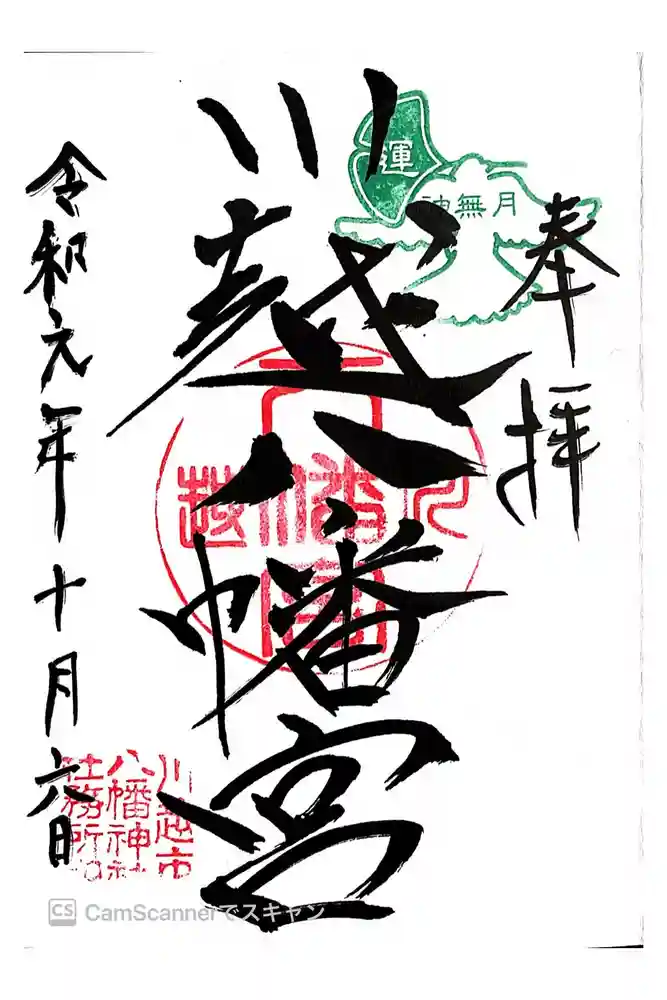 奉拝
運
月無神
川越八幡宮
令和元年十月六日
川越市
八幡神社
社務所
CamScannerでスキャン